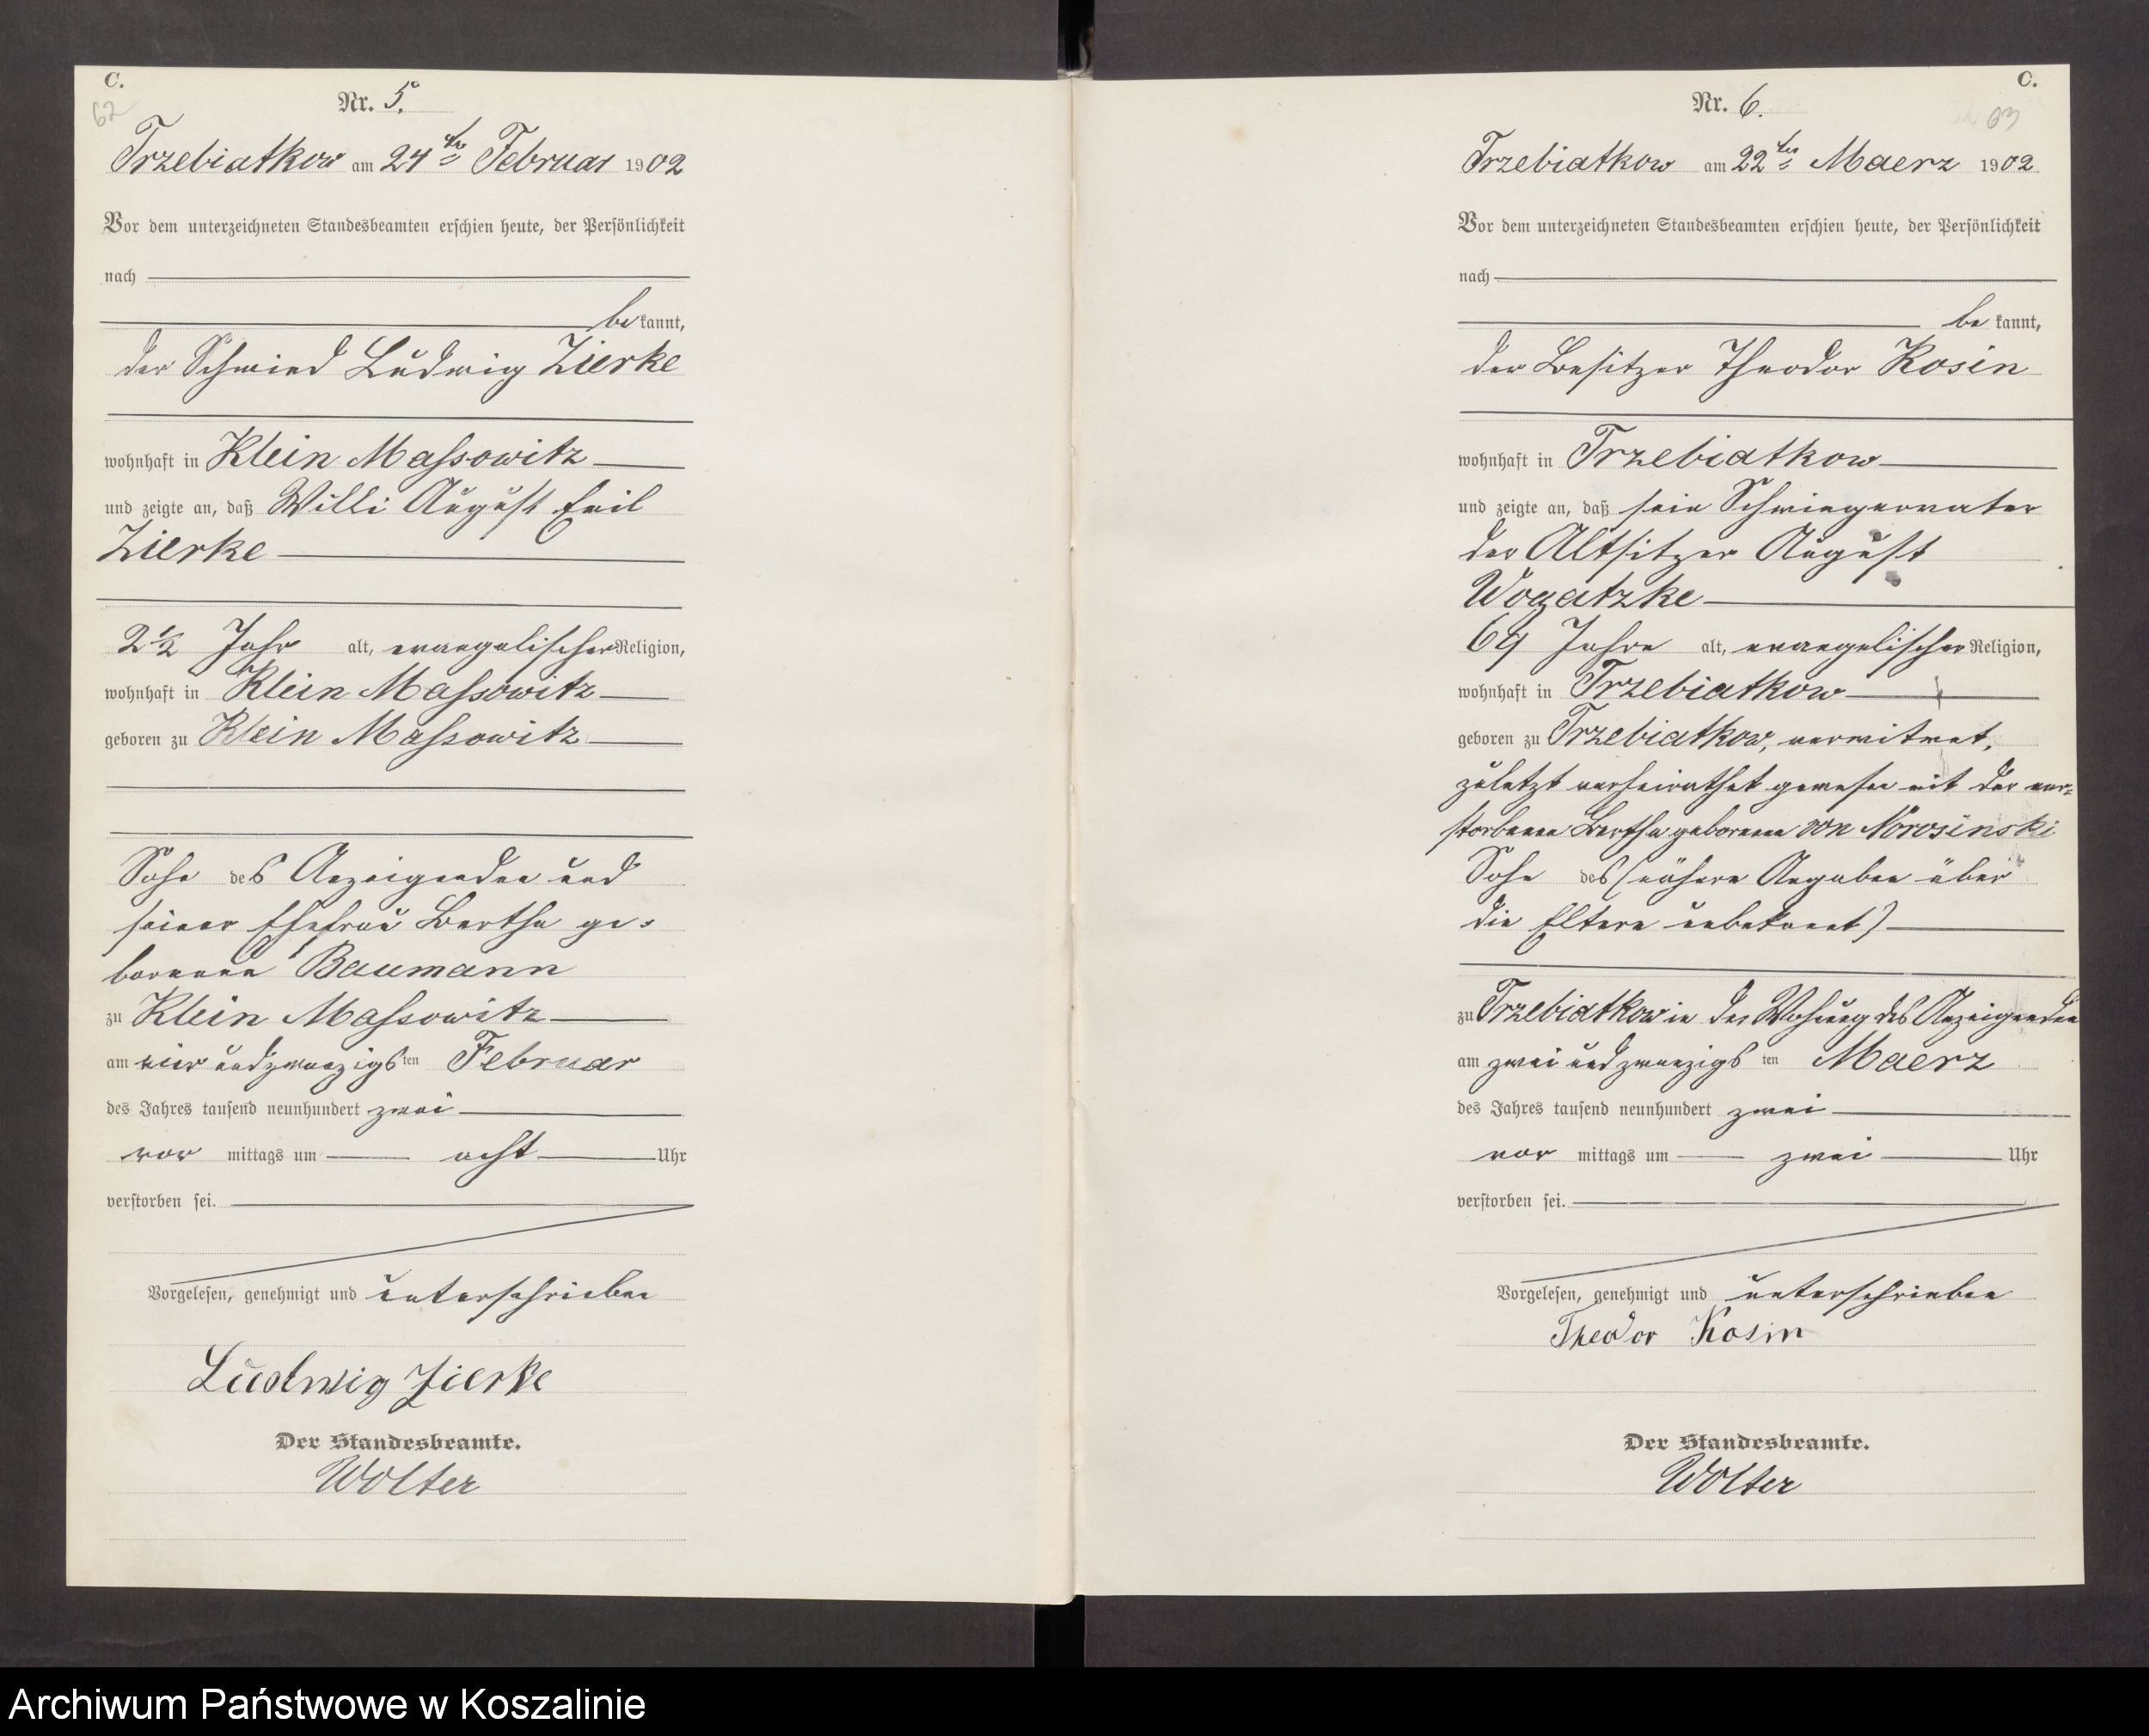 C.
62
Nr. 5.
Trzebiatkow am 24ten Februar 1902
Vor dem unterzeichneten Standesbeamten erschien heute, der Persönlichkeit
nach
bekannt,
der Schmied Ludwig Zierke
wohnhaft in Klein Massowitz
und zeigte an, daß Willi August Emil
Zierke
2 1/2 Jahr alt, evangelischer Religion,
wohnhaft in Klein Massowitz
geboren zu Klein Massowitz
Sohn des Anzeigenden und
seiner Ehefrau Bertha ge=
borenen Baumann
zu Klein Massowitz
am vier und zwanzigsten Februar
des Jahres tausend neunhundert zwei
vor mittags um acht Uhr
verstorben sei.
Vorgelesen, genehmigt und unterschrieben
Ludwig Zierke
Der Standesbeamte.
Wolter
C.
63
Nr. 6.
Trzebiatkow am 22ten Maerz 1902
Vor dem unterzeichneten Standesbeamten erschien heute, der Persönlichkeit
nach
bekannt,
der Besitzer Theodor Rosin
wohnhaft in Trzebiatkow
und zeigte an, daß sein Schwiegervater
der Altsitzer August
Wogatzke
69 Jahre alt, evangelischer Religion,
wohnhaft in Trzebiatkow
geboren zu Trzebiatkow, verwitwet,
zuletzt verheirathet gewesen mit der ver=
storbenen Bertha geborenen von
Sohn des (nähere Angaben über
die Eltern unbekannt)
zu Trzebiatkow in der Wohnung des Anzeigenden
am zwei und zwanzigsten Maerz
des Jahres tausend neunhundert zwei
vor mittags um zwei Uhr
verstorben sei.
Vorgelesen, genehmigt und unterschrieben
Theodor Rosin
Der Standesbeamte.
Wolter
Archiwum Państwowe w Koszalinie